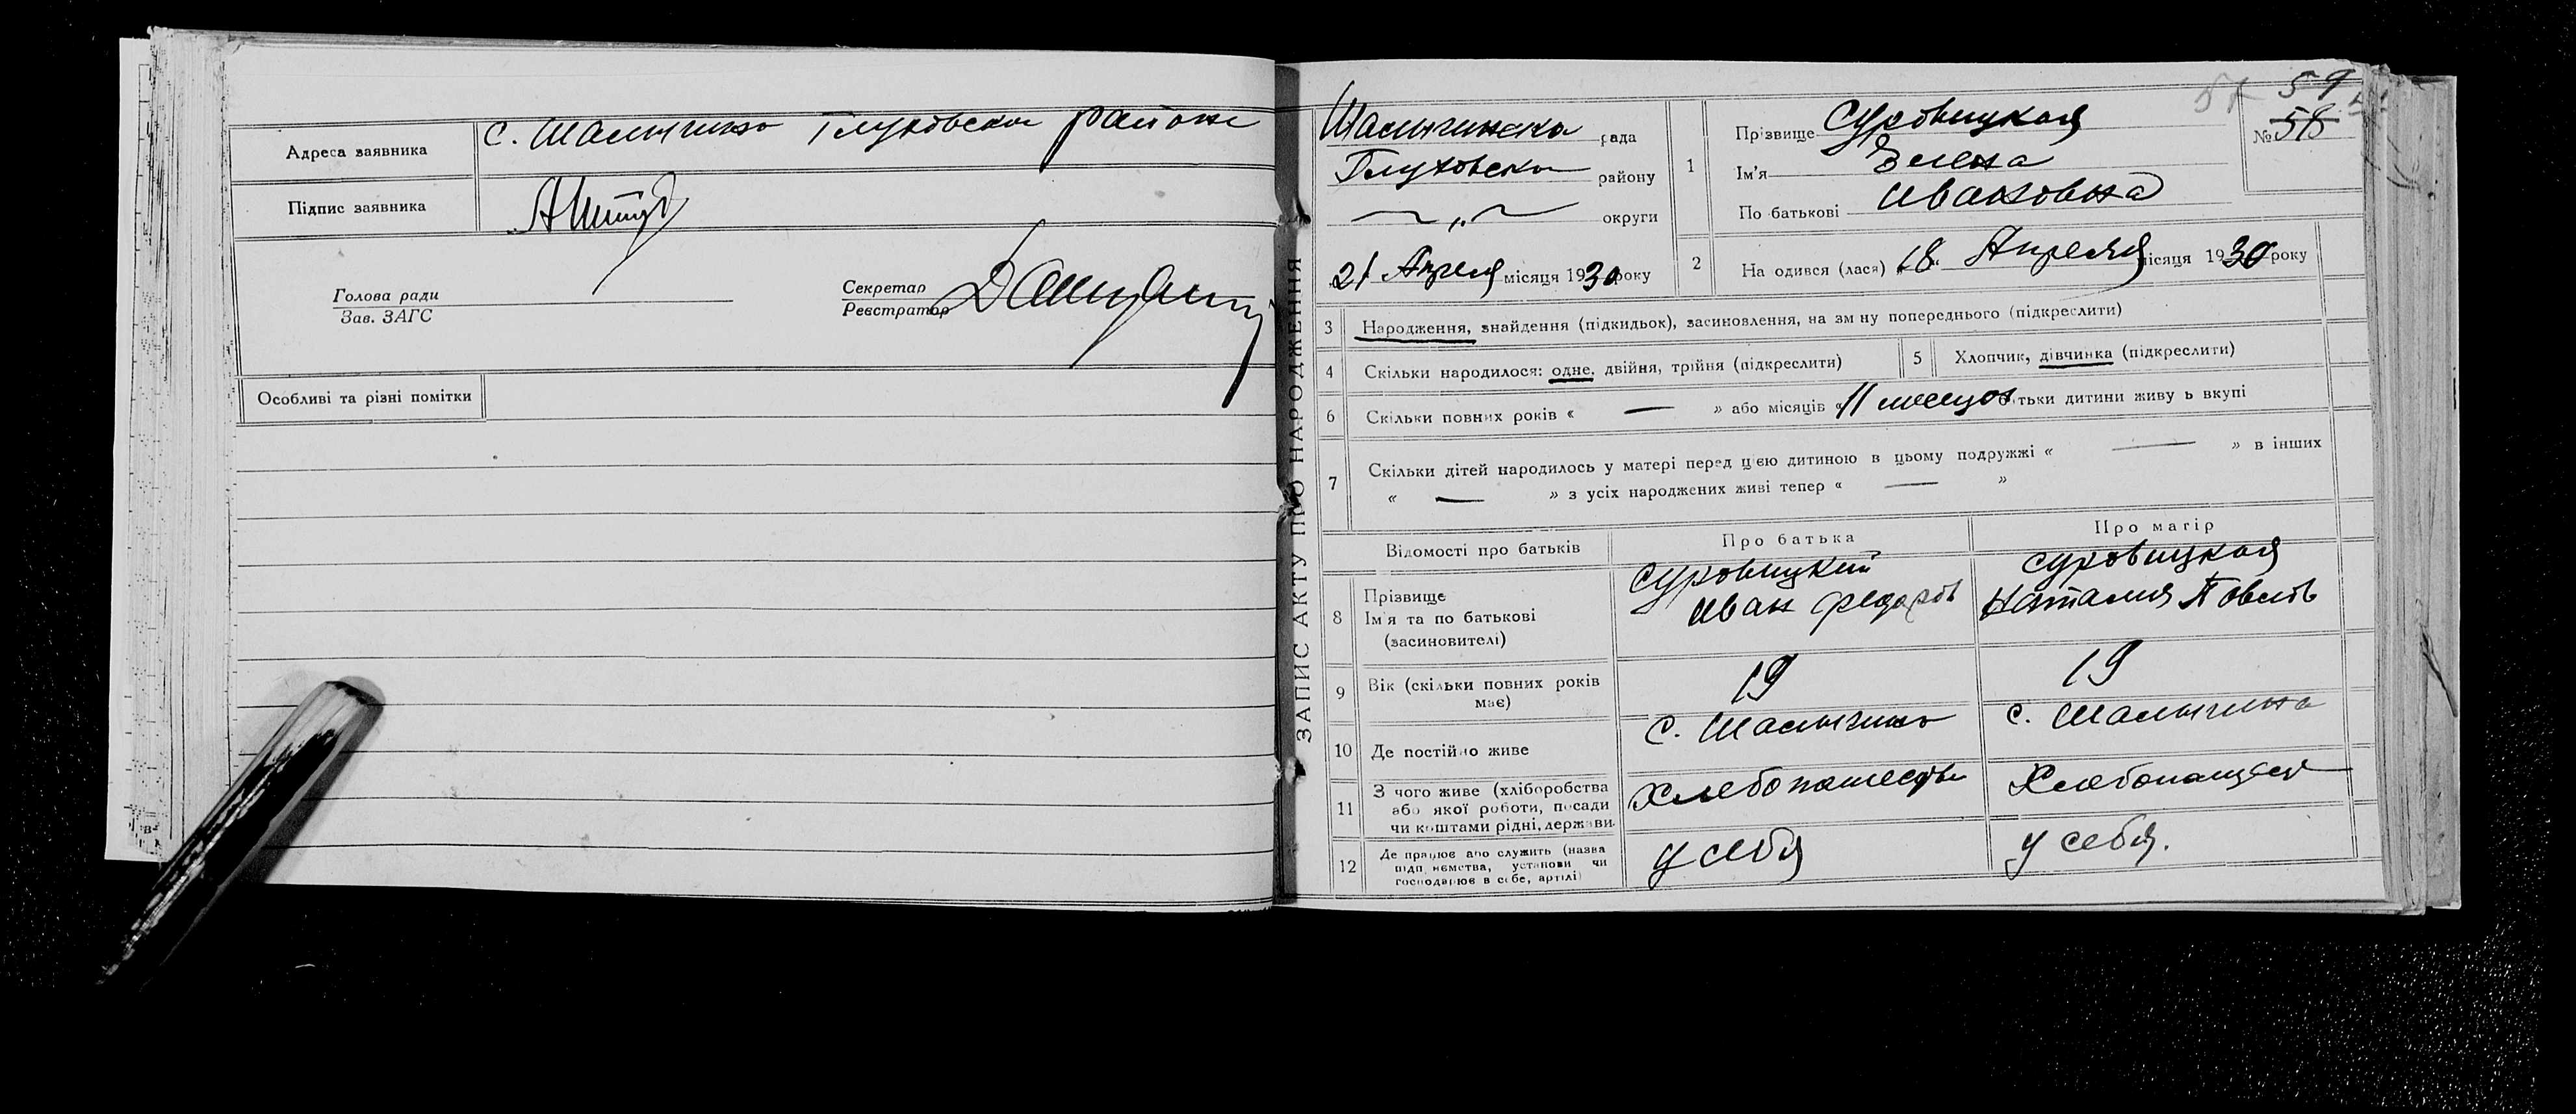 Адреса заявника с. Шалыгино Глуховского района
Підпис заявника
Голова ради
Зав. ЗАГС
Секретар
Реєстратор
Особливі та різні помітки
ЗАПИС АКТУ ПРО НАРОДЖЕННЯ
59
№ 58
Шалыгинска рада
Глуховска району
— „ — округи
21 Апреля місяця 1930 року
1 Прізвище Суровицкая
Ім'я Елена
По батькові Ивановна
2 На одився (лася) „18“ Апреля місяця 1930 року
3 Народження, знайдення (підкидьок), засиновлення, на зм ну попереднього (підкреслити)
4 Скільки народилося: одне, двійня, трійня (підкреслити)
5 Хлопчик, дівчинка (підкреслити)
6 Скільки повних років « — » або місяців « 11 месяцов батьки дитини живу ь вкупі
7 Скільки дітей народилось у матері перед цією дитиною в цьому подружжі « — » в інших
« — » з усіх народжених живі тепер « — »
Відомості про батьків Про батька Про матір
8 Прізвище
Ім'я та по батькові
(засиновителі)
Суровицкий
Иван Федоров
Суровицкая
Наталия Павлов
9 Вік (скільки повних років
має)
19
19
10 Де постійно живе
с. Шалыгино
с. Шалыгина
11 З чого живе (хліборобства
або якої роботи, посади
чи коштами рідні, держави
Хлебопашество
12 Де працює або служить (назва
підп иємства, установи чи
господарює в себе, артілі)
у себя
у себя.